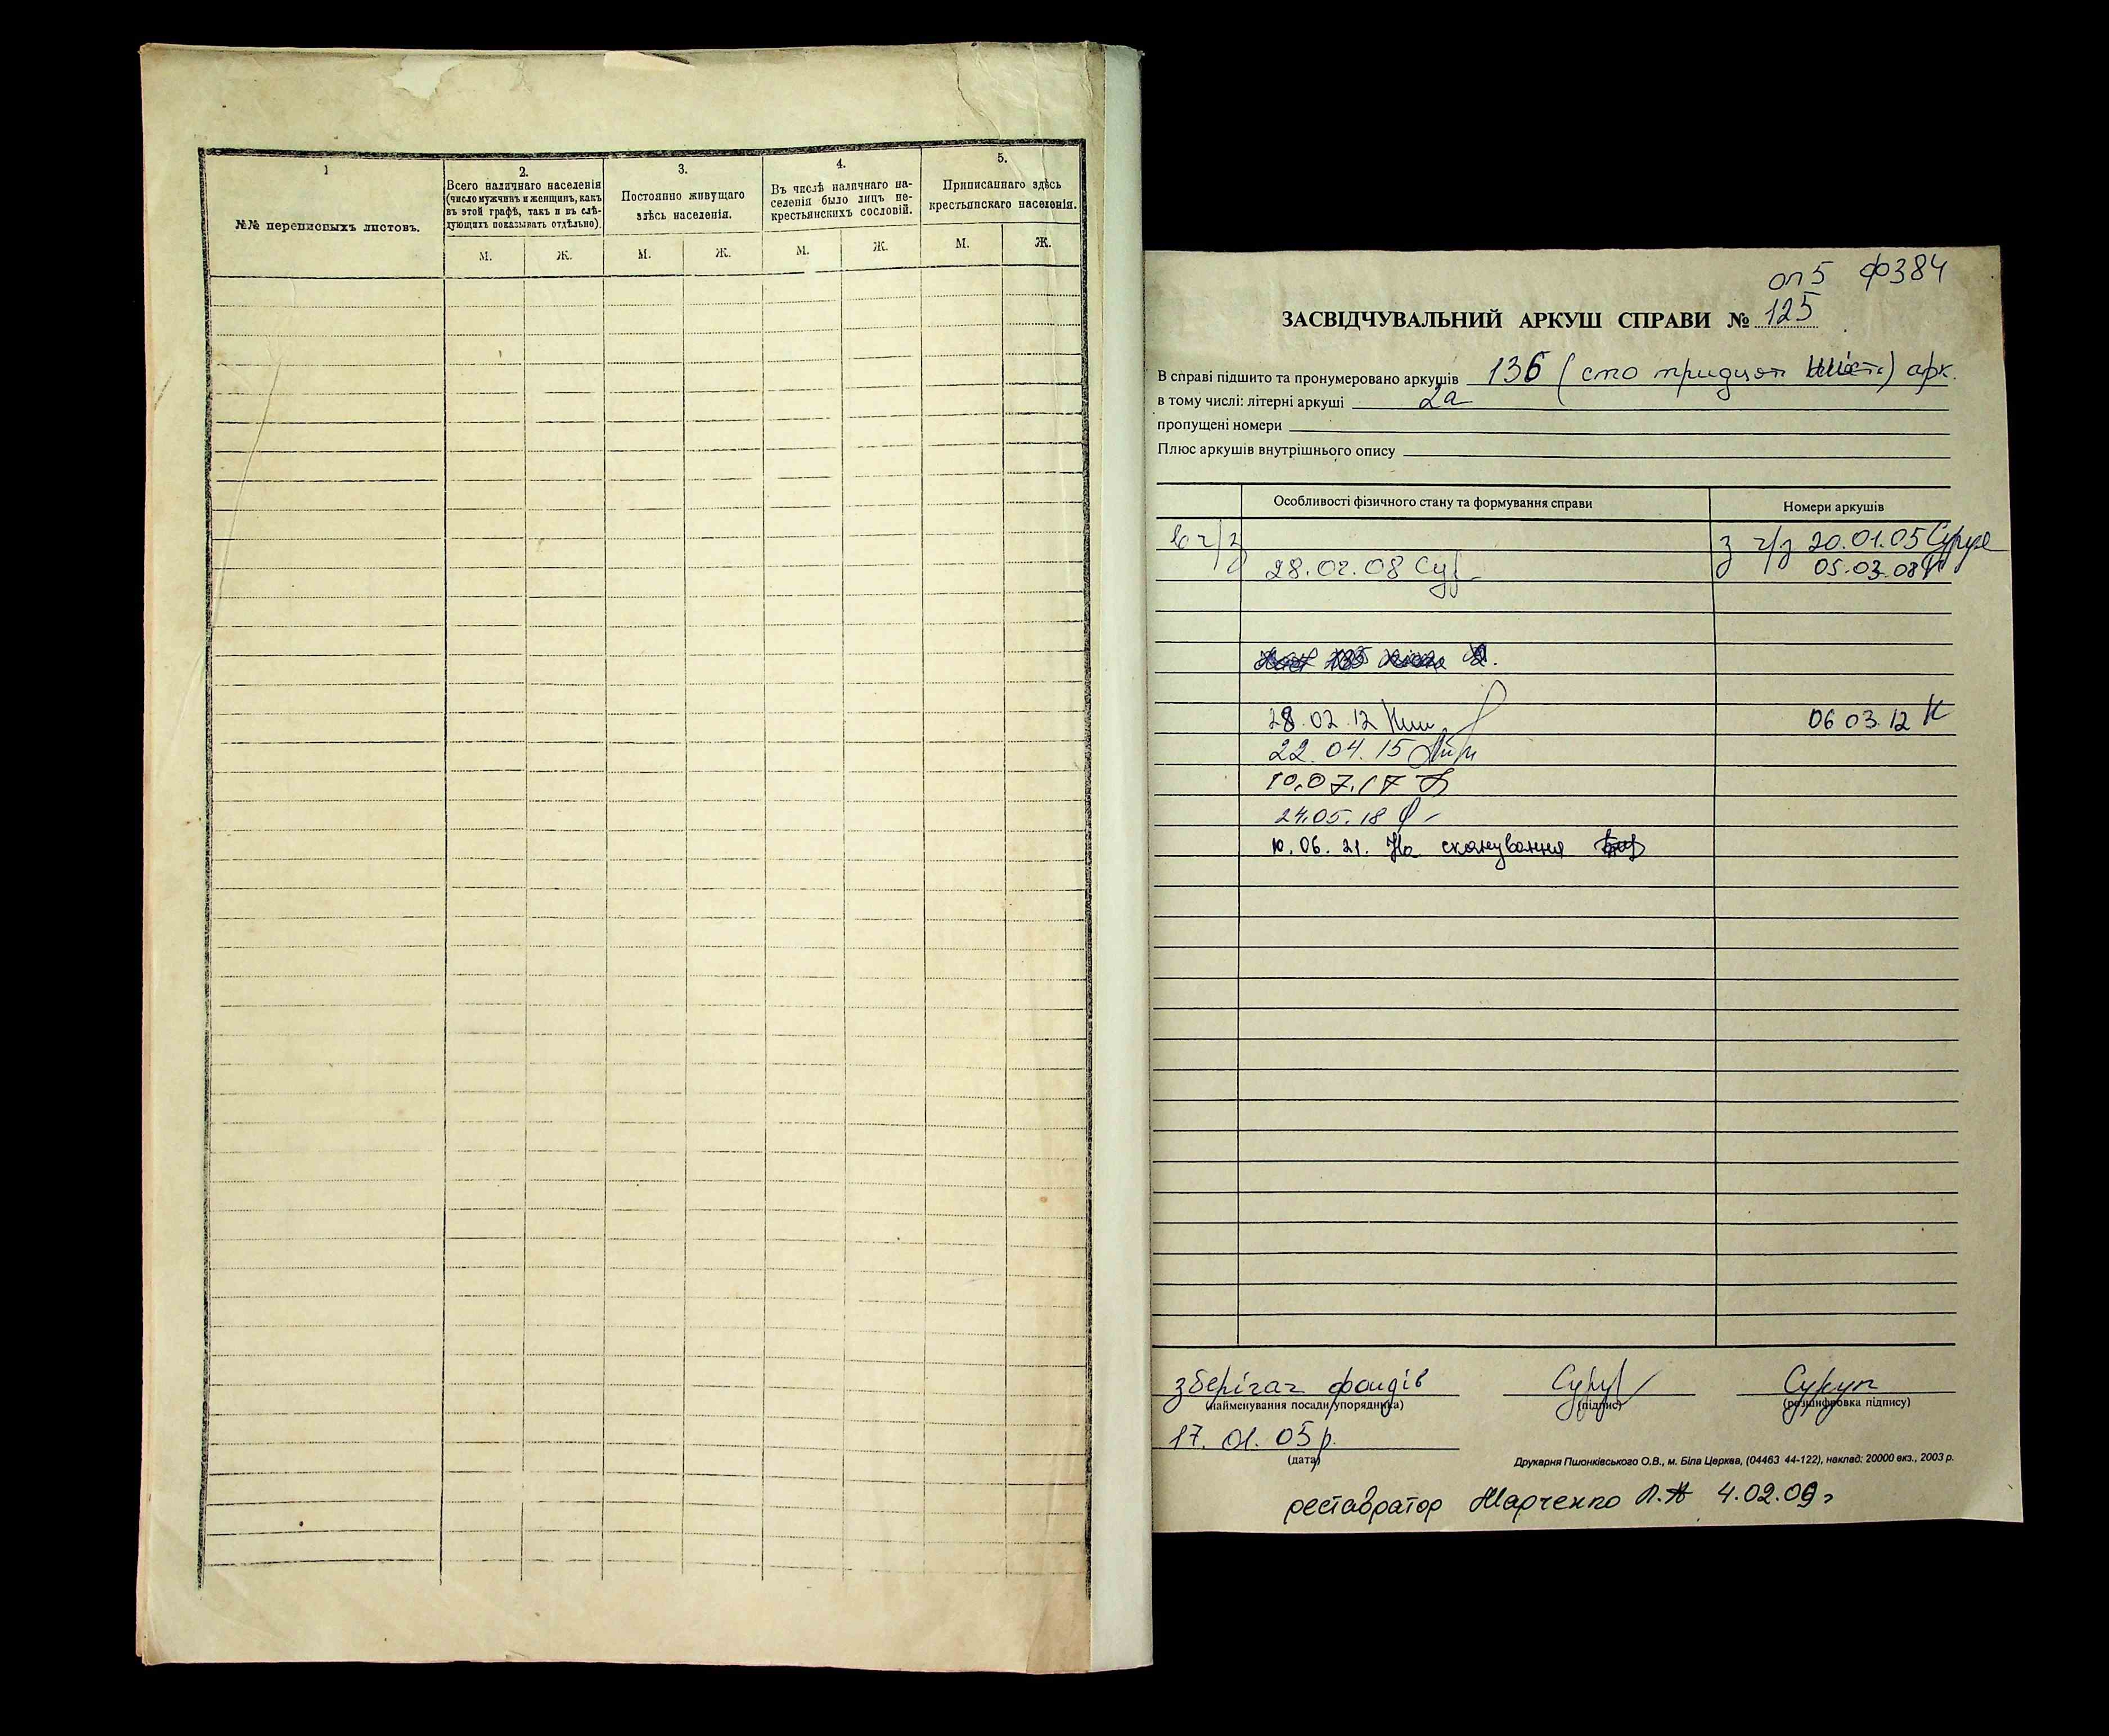 1
№№ переписныхъ листовъ.
2.
Всего наличнаго населенія
(число мужчинъ и женщинъ, какъ
въ этой графѣ, такъ и въ слѣ-
дующихъ показывать отдѣльно).
М. Ж.
3.
Постоянно живущаго
здѣсь населенія.
М. Ж.
4.
Въ числѣ наличнаго на-
селенія было лицъ не-
крестьянскихъ сословій.
М. Ж.
5.
Приписаннаго здѣсь
крестьянскаго населенія.
М. Ж.
оп 5 ф 384
ЗАСВІДЧУВАЛЬНИЙ АРКУШ СПРАВИ № 125
В справі підшито та пронумеровано аркушів 136 (сто тридцят шість) арк.
в тому числі: літерні аркуші 2а
пропущені номери
Плюс аркушів внутрішнього опису
Особливості фізичного стану та формування справи Номери аркушів
з ч/з 20.01.05
28.02.08 05.03.08
28.02.12 06 03.12 К
22.04.15
10.07.17
24.05.18
10.06.21. На сканування
зберігач фондів Сукуп
(найменування посади упорядника) (підпис) (розшифровка підпису)
17.01.05 р.
(дата)
Друкарня Пшонківського О.В., м. Біла Церква, (04463 44-122), наклад: 20000 екз., 2003 р.
реставратор Марченко 4.02.09